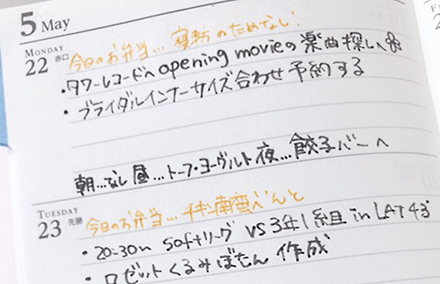 5 May
MONDAY
22 赤口 今日のお弁当…寝坊のためなし!
・タワーレコードへ opening movieの楽曲探しへ
・ブライダルインナーサイズ合わせ予約する
朝…なし 昼…トーフ・ヨーグルト 夜…餃子バーへ
TUESDAY
23 先勝 今日のお弁当…チキン南蛮べんと
・20:30~ softリーグ VS 3年1組 in LAT43°
・ロゼットくるみぼたん 作成